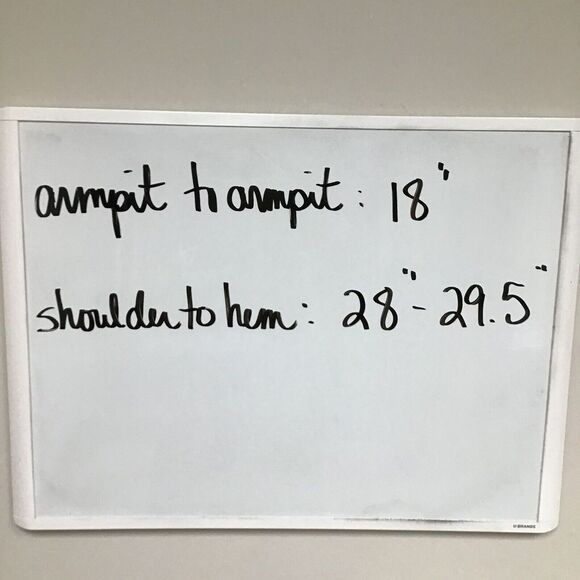 armpit to armpit: 18"
shoulder to hem: 28"- 29.5"
U BRANDS